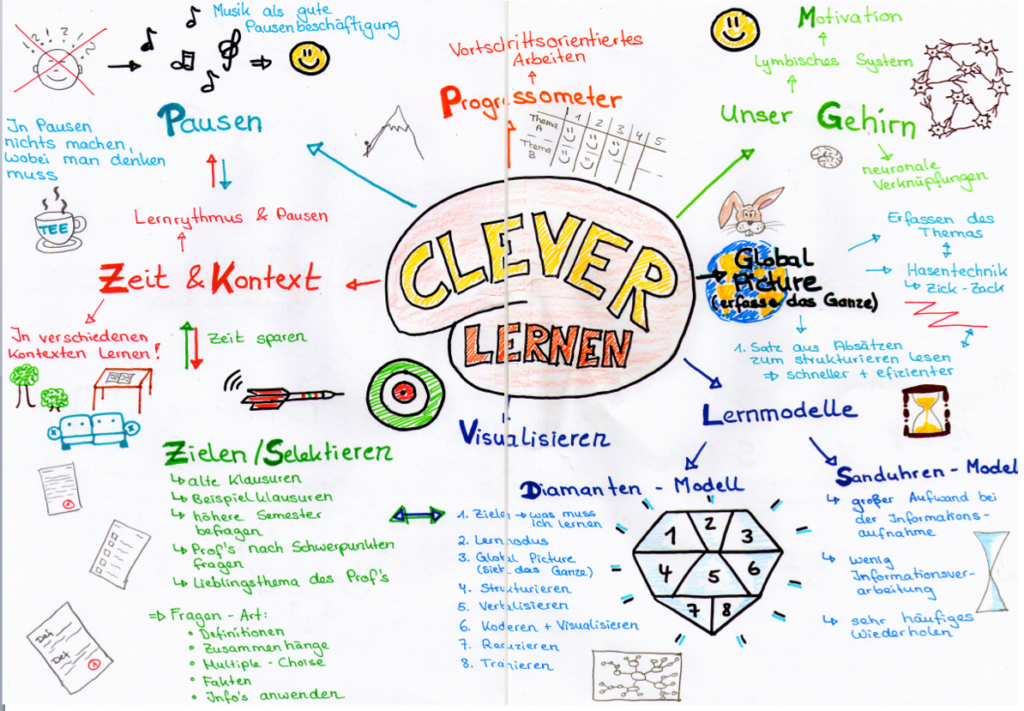 CLEVER
LERNEN
Musik als gute
Pausenbeschäftigung
Pausen
In Pausen
nichts machen,
wobei man denken
muss
TEE
Lernrythmus & Pausen
Zeit & Kontext
In verschiedenen
Kontexten Lernen!
Zeit sparen
Zielen/Selektieren
alte Klausuren
Beispielklausuren
höhere Semester
befragen
Prof's nach Schwerpunkten
fragen
Lieblingsthema des Prof's
⇒ Fragen - Art:
• Definitionen
• Zusammenhänge
• Multiple - Choise
• Fakten
• Info's anwenden
Def
Def
Vortschrittsorientiertes
Arbeiten
Progressometer
1 2 3 4 5
Thema
A
Thema
B
Motivation
Lymbisches System
Unser Gehirn
neuronale
Verknüpfungen
Global
Picture
(erfasse das Ganze)
Erfassen des
Themas
Hasentechnik
Zick - Zack
1. Satz aus Absätzen
zum strukturieren lesen
⇒ schneller + efizienter
Lernmodelle
Visualisieren
Diamanten - Modell
1. Zielen → was muss
ich lernen
2. Lernmodus
3. Global Picture
(sieh das Ganze)
4. Strukturieren
5. Verbalisieren
6. Koderen + Visualisieren
7. Reduzieren
8. Tranieren
1 2 3
4 5 6
7 8
Sanduhren - Modell
großer Aufwand bei
der Informations-
aufnahme
wenig
Informationsver-
arbeitung
sehr häufiges
Wiederholen